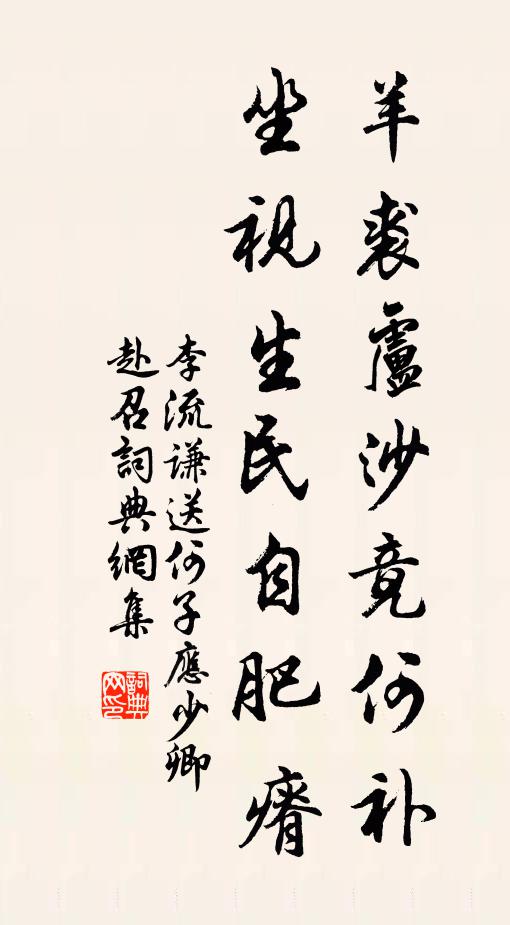 羊裘廬沙竟何补
坐視生民自肥瘠
李流謙送何子應少卿
赴召詞典網集
詞典
网印